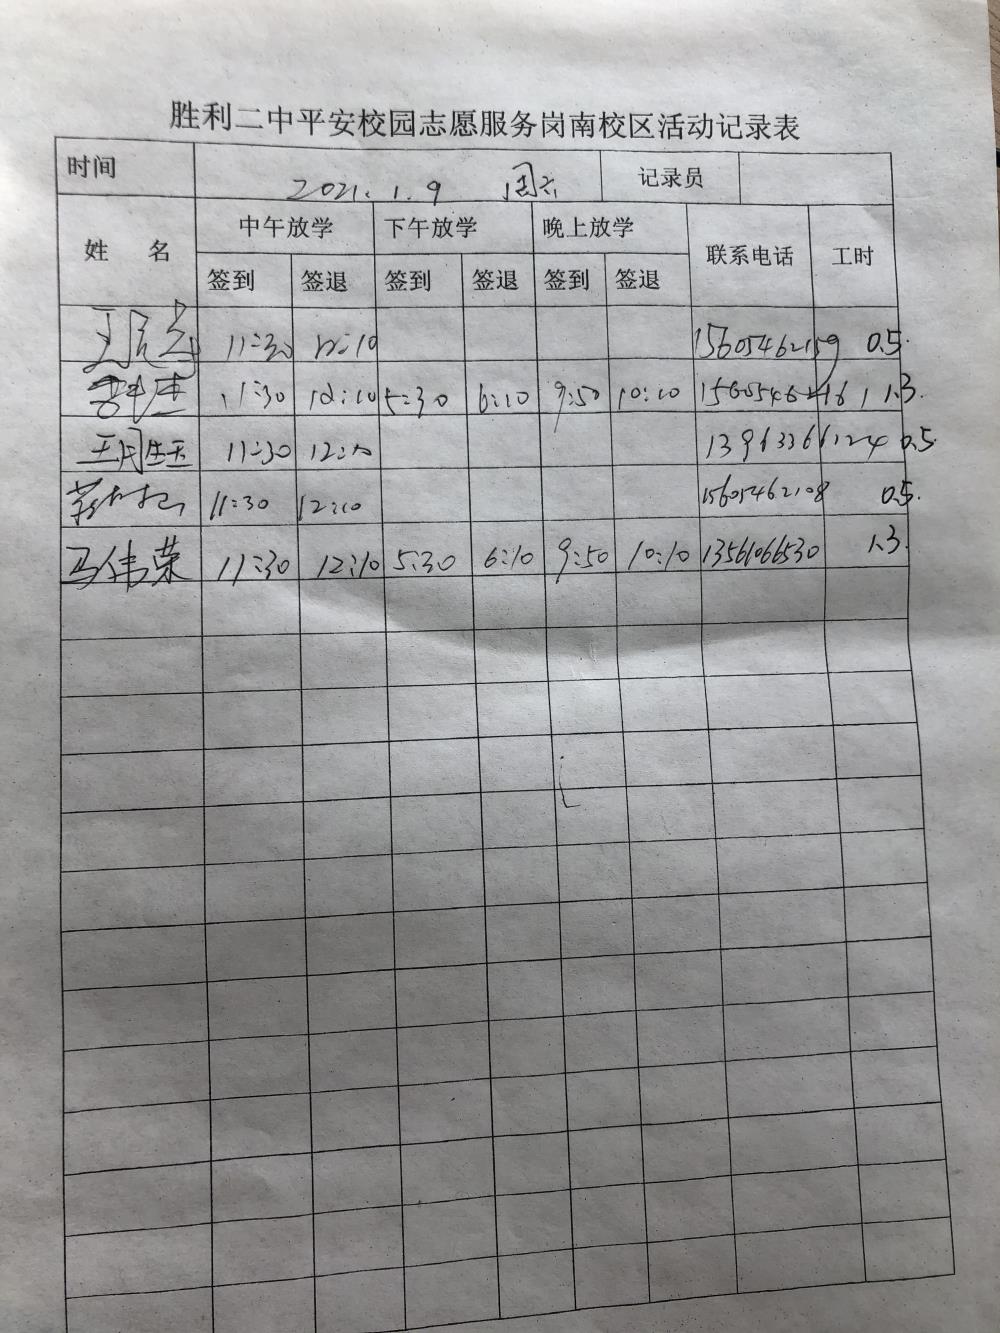 胜利二中平安校园志愿服务岗南校区活动记录表
时间 2021.1.9 周六 记录员
姓 名 中午放学 下午放学 晚上放学 联系电话 工时
签到 签退 签到 签退 签到 签退
11:30 12:10 15605462159 0.5
11:30 12:10 5:30 6:10 9:50 10:10 1.3
11:30 12:10 13963366124 0.5
11:30 12:10 15605462108 0.5
马伟荣 11:30 12:10 5:30 6:10 9:50 10:10 13561066530 1.3